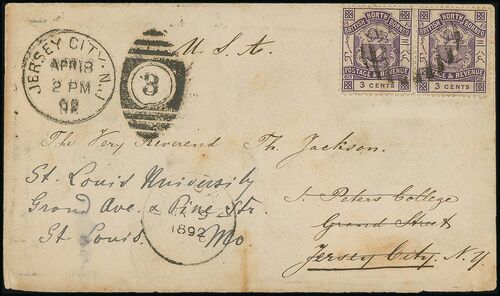 JERSEY CITY. N.J.
APR 18
2 PM
92
3
U.S.A.
BRITISH NORTH BORNEO
POSTAGE & REVENUE
3 CENTS
BRITISH NORTH BORNEO
POSTAGE & REVENUE
3 CENTS
The Very Reverend Th. Jackson.
St. Louis University
Grand Ave. & Pine Str.
St. Louis. Mo
1892
St. Peters College
Grand Street
Jersey City. N.Y.